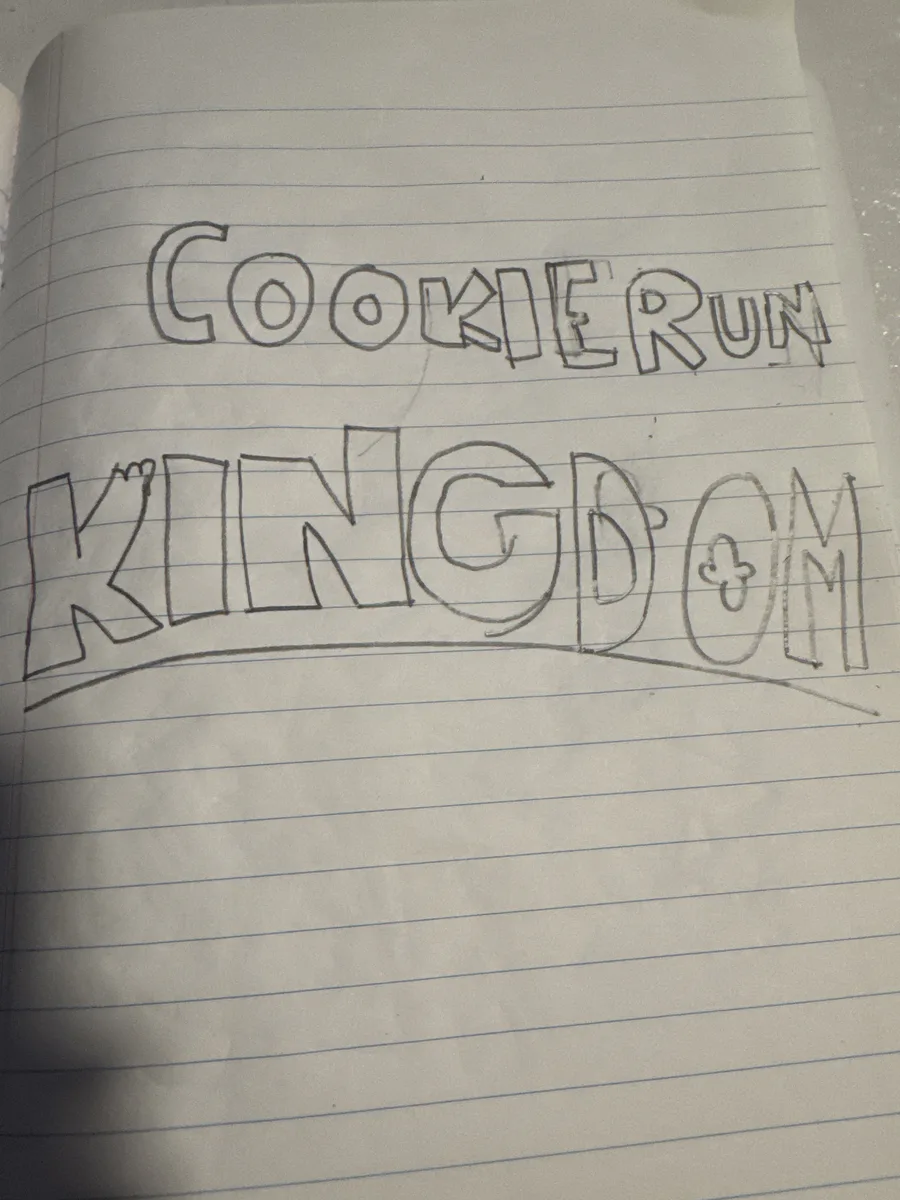 COOKIERUN
KINGDOM